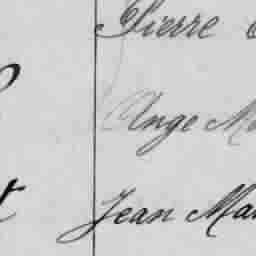 Pierre
Ange Ma
Jean Mar